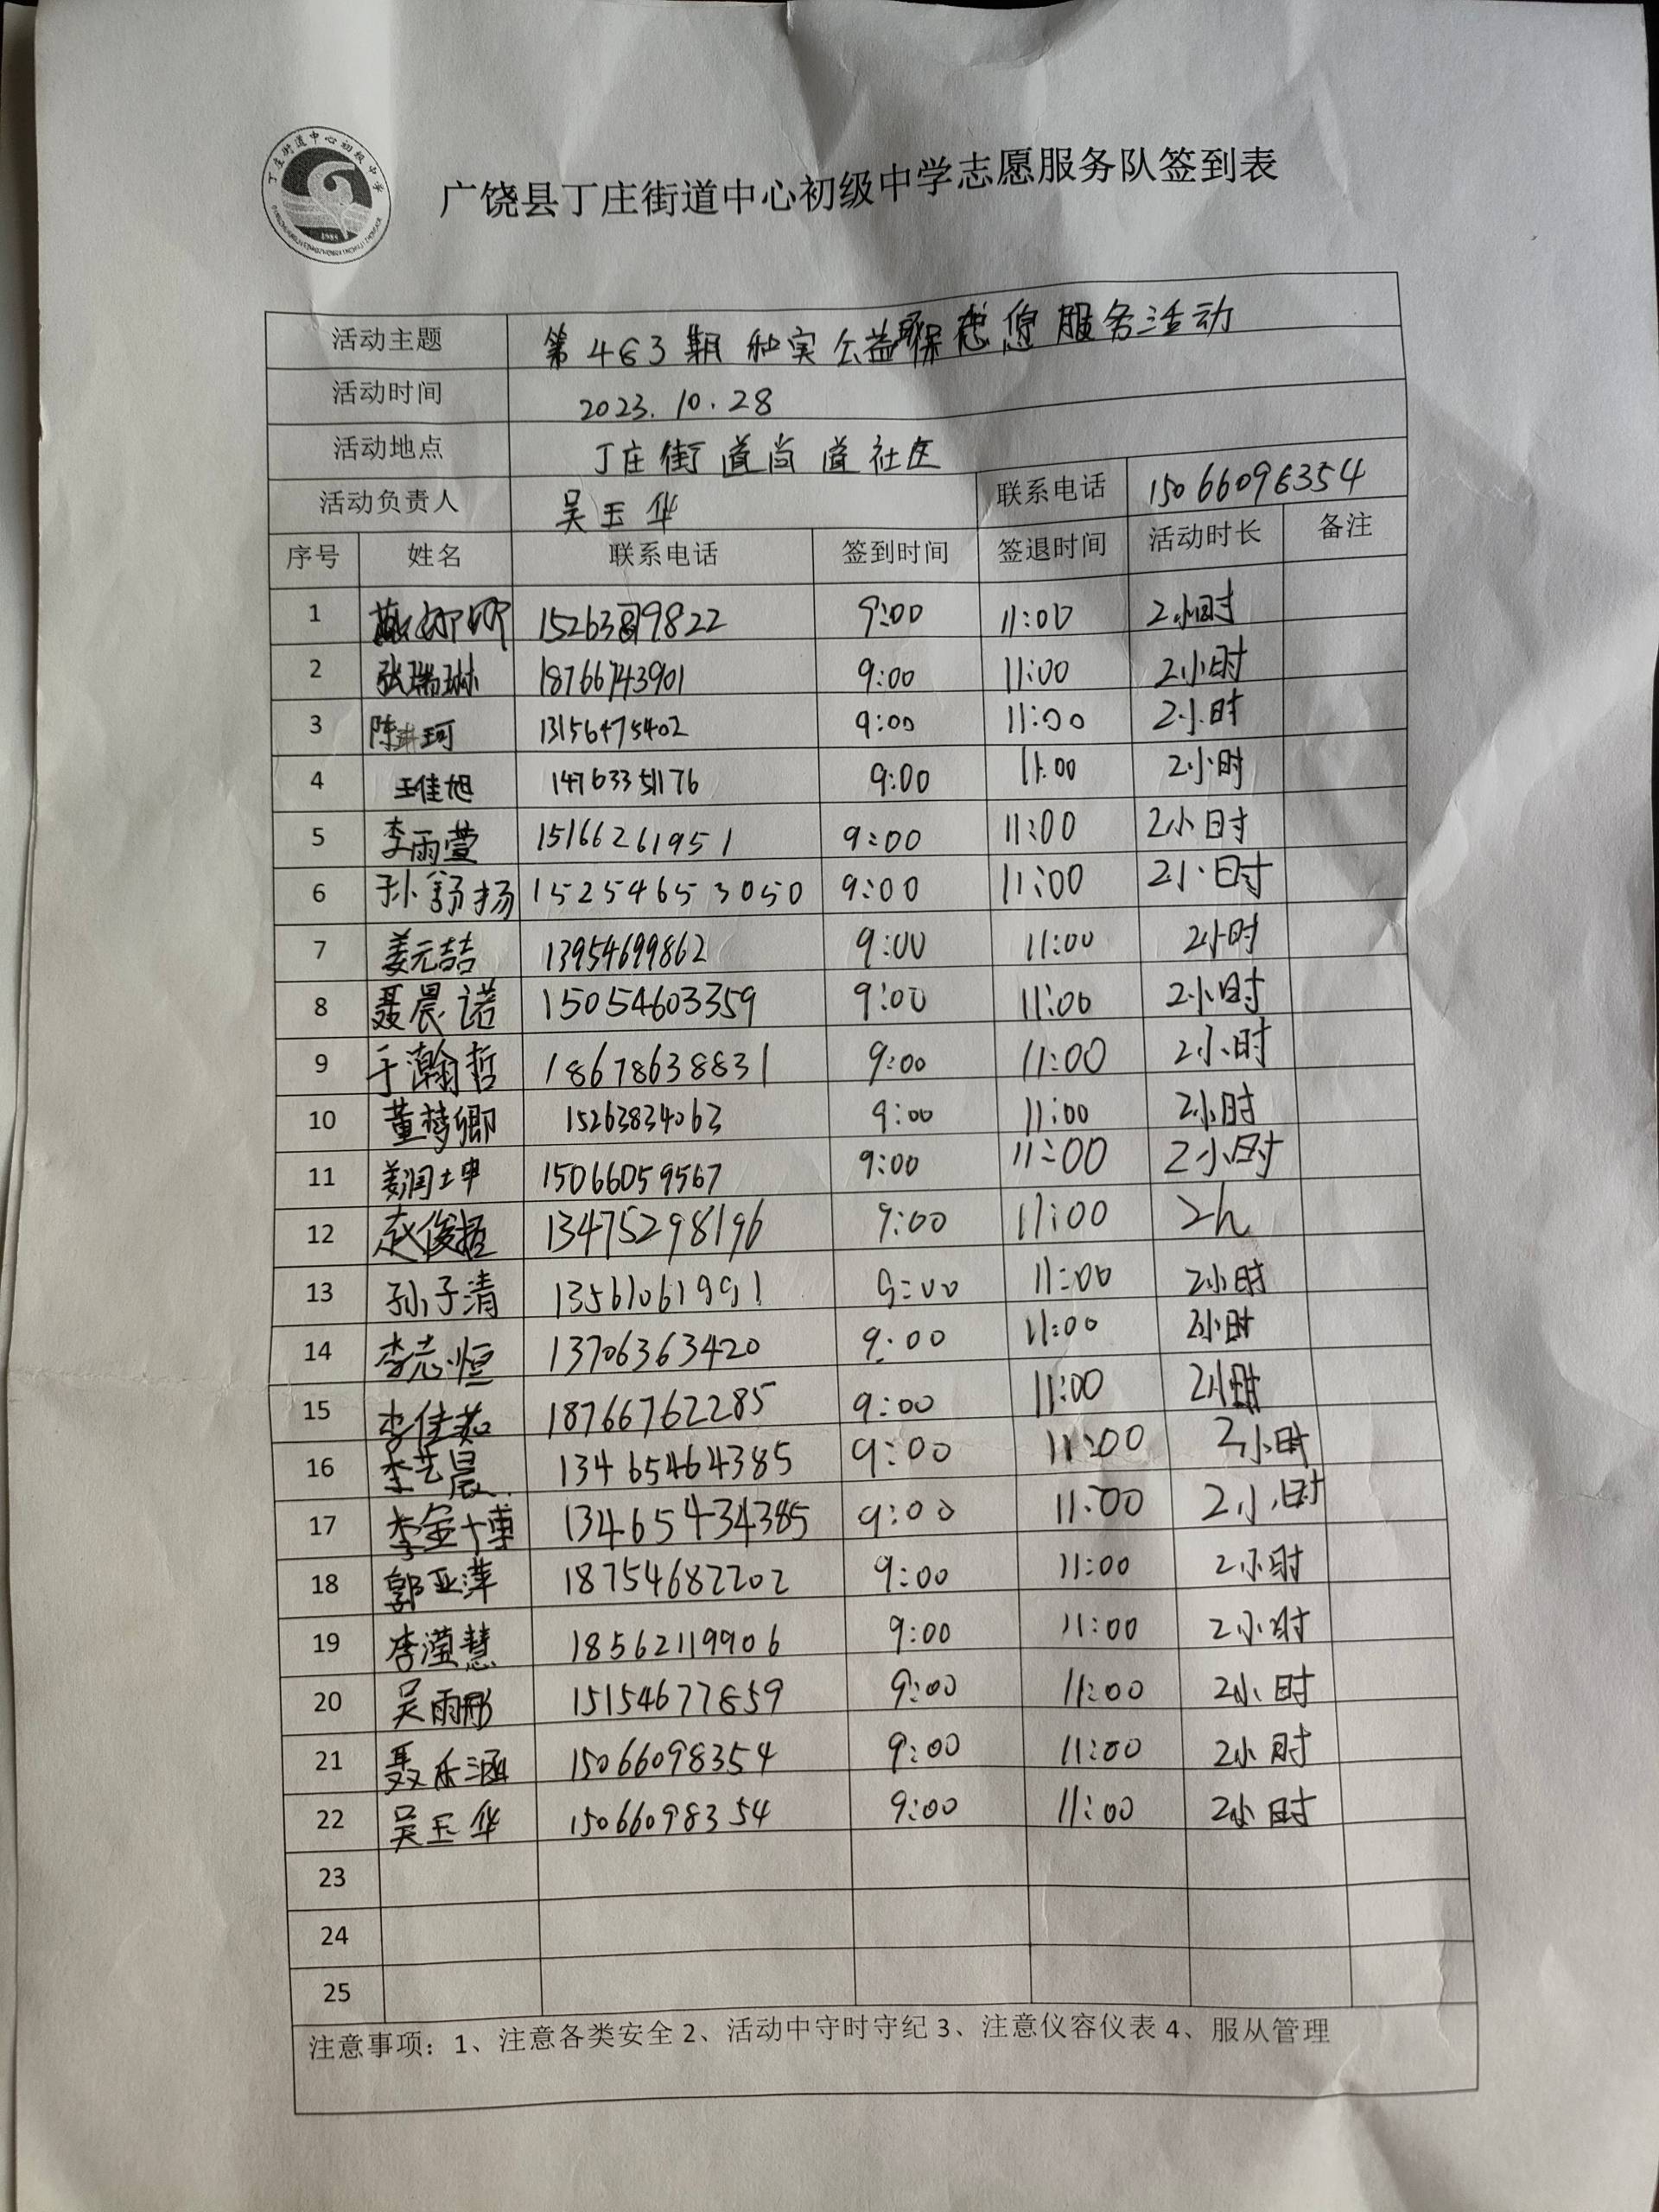 丁庄街道中心初级中学
1985
广饶县丁庄街道中心初级中学志愿服务队签到表
活动主题 第463期和实公益 服务活动
活动时间 2023.10.28
活动地点 丁庄街道尚道社区
活动负责人 吴玉华 联系电话 15066098354
序号 姓名 联系电话 签到时间 签退时间 活动时长 备注
1 9:00 11:00 2小时
2 张瑞琳 18766743901 9:00 11:00 2小时
3 陈琳珂 13156475402 9:00 11:00 2小时
4 王佳旭 14763351176 9:00 11:00 2小时
5 李雨萱 15166261951 9:00 11:00 2小时
6 孙舒扬 15254653050 9:00 11:00 2小时
7 姜元喆 13954699862 9:00 11:00 2小时
8 聂晨诺 15054603359 9:00 11:00 2小时
9 于瀚哲 18678638831 9:00 11:00 2小时
10 董梦卿 15263834063 9:00 11:00 2小时
11 姜润坤 15066059567 9:00 11:00 2小时
12 赵俊 13475298196 9:00 11:00 2h
13 孙子清 13561061991 9:00 11:00 2小时
14 李志恒 13706363420 9:00 11:00 2小时
15 李佳茹 18766762285 9:00 11:00 2小时
16 李艺晨 13465464385 9:00 11:00 2小时
17 李金博 13465434385 9:00 11:00 2小时
18 郭亚萍 18754682202 9:00 11:00 2小时
19 李滢慧 18562119906 9:00 11:00 2小时
20 吴雨彤 15154677859 9:00 11:00 2小时
21 聂乐涵 15066098354 9:00 11:00 2小时
22 吴玉华 15066098354 9:00 11:00 2小时
23
24
25
注意事项：1、注意各类安全 2、活动中守时守纪 3、注意仪容仪表 4、服从管理